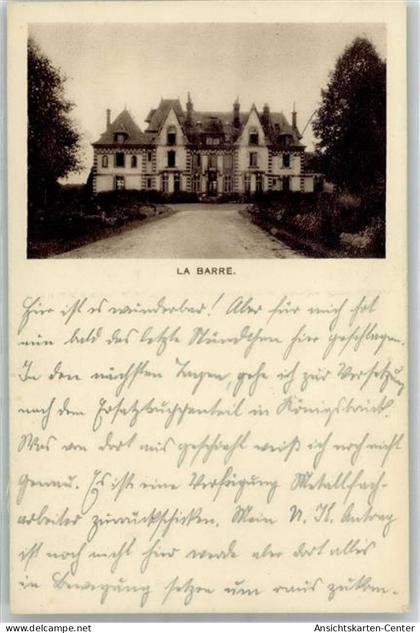 LA BARRE.
Hier ist es wunderbar! Aber für mich hat
nun bald das letzte Stündchen hier geschlagen.
In den nächsten Tagen, gehe ich zur Versetzung
nach dem Ersatztruppenteil in Königsbrück.
Was von dort aus geschieht weiß ich noch nicht
genau. Es ist eine Verfügung Metallfach-
arbeiter zurückschicken. Mein Antrag
ist noch nicht hier werde aber dort alles
in Bewegung setzen um raus zukom-
Ansichtskarten-Center